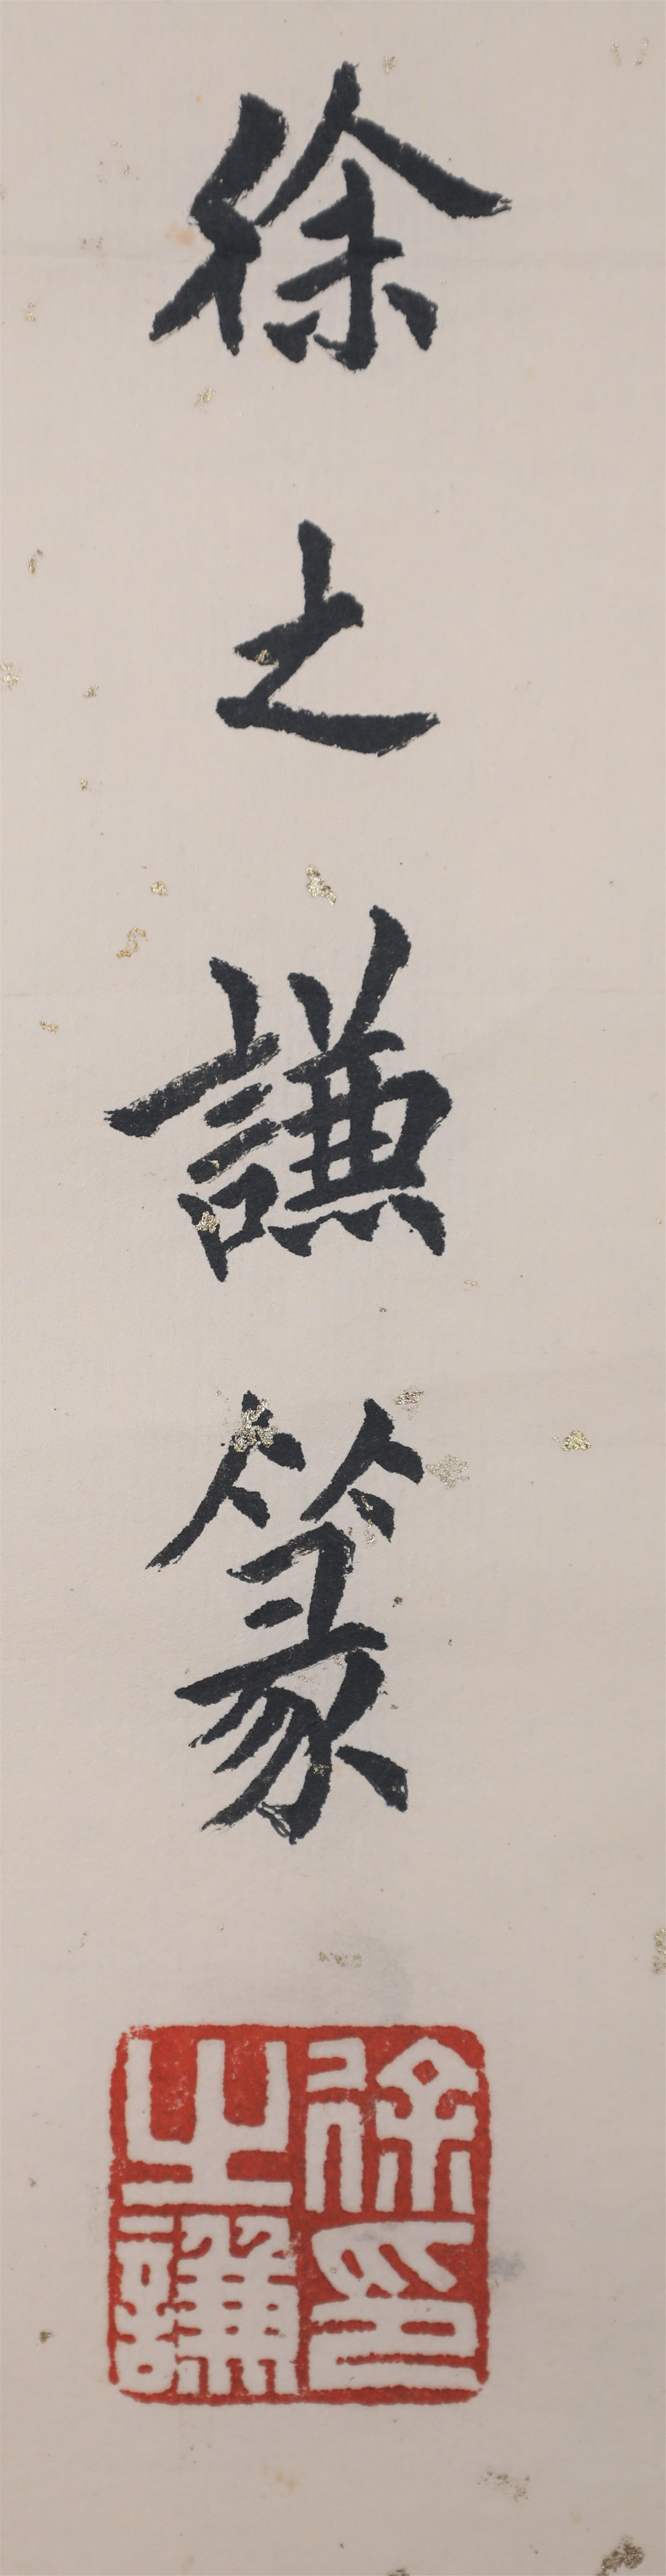 徐之謙篆
徐印
之謙